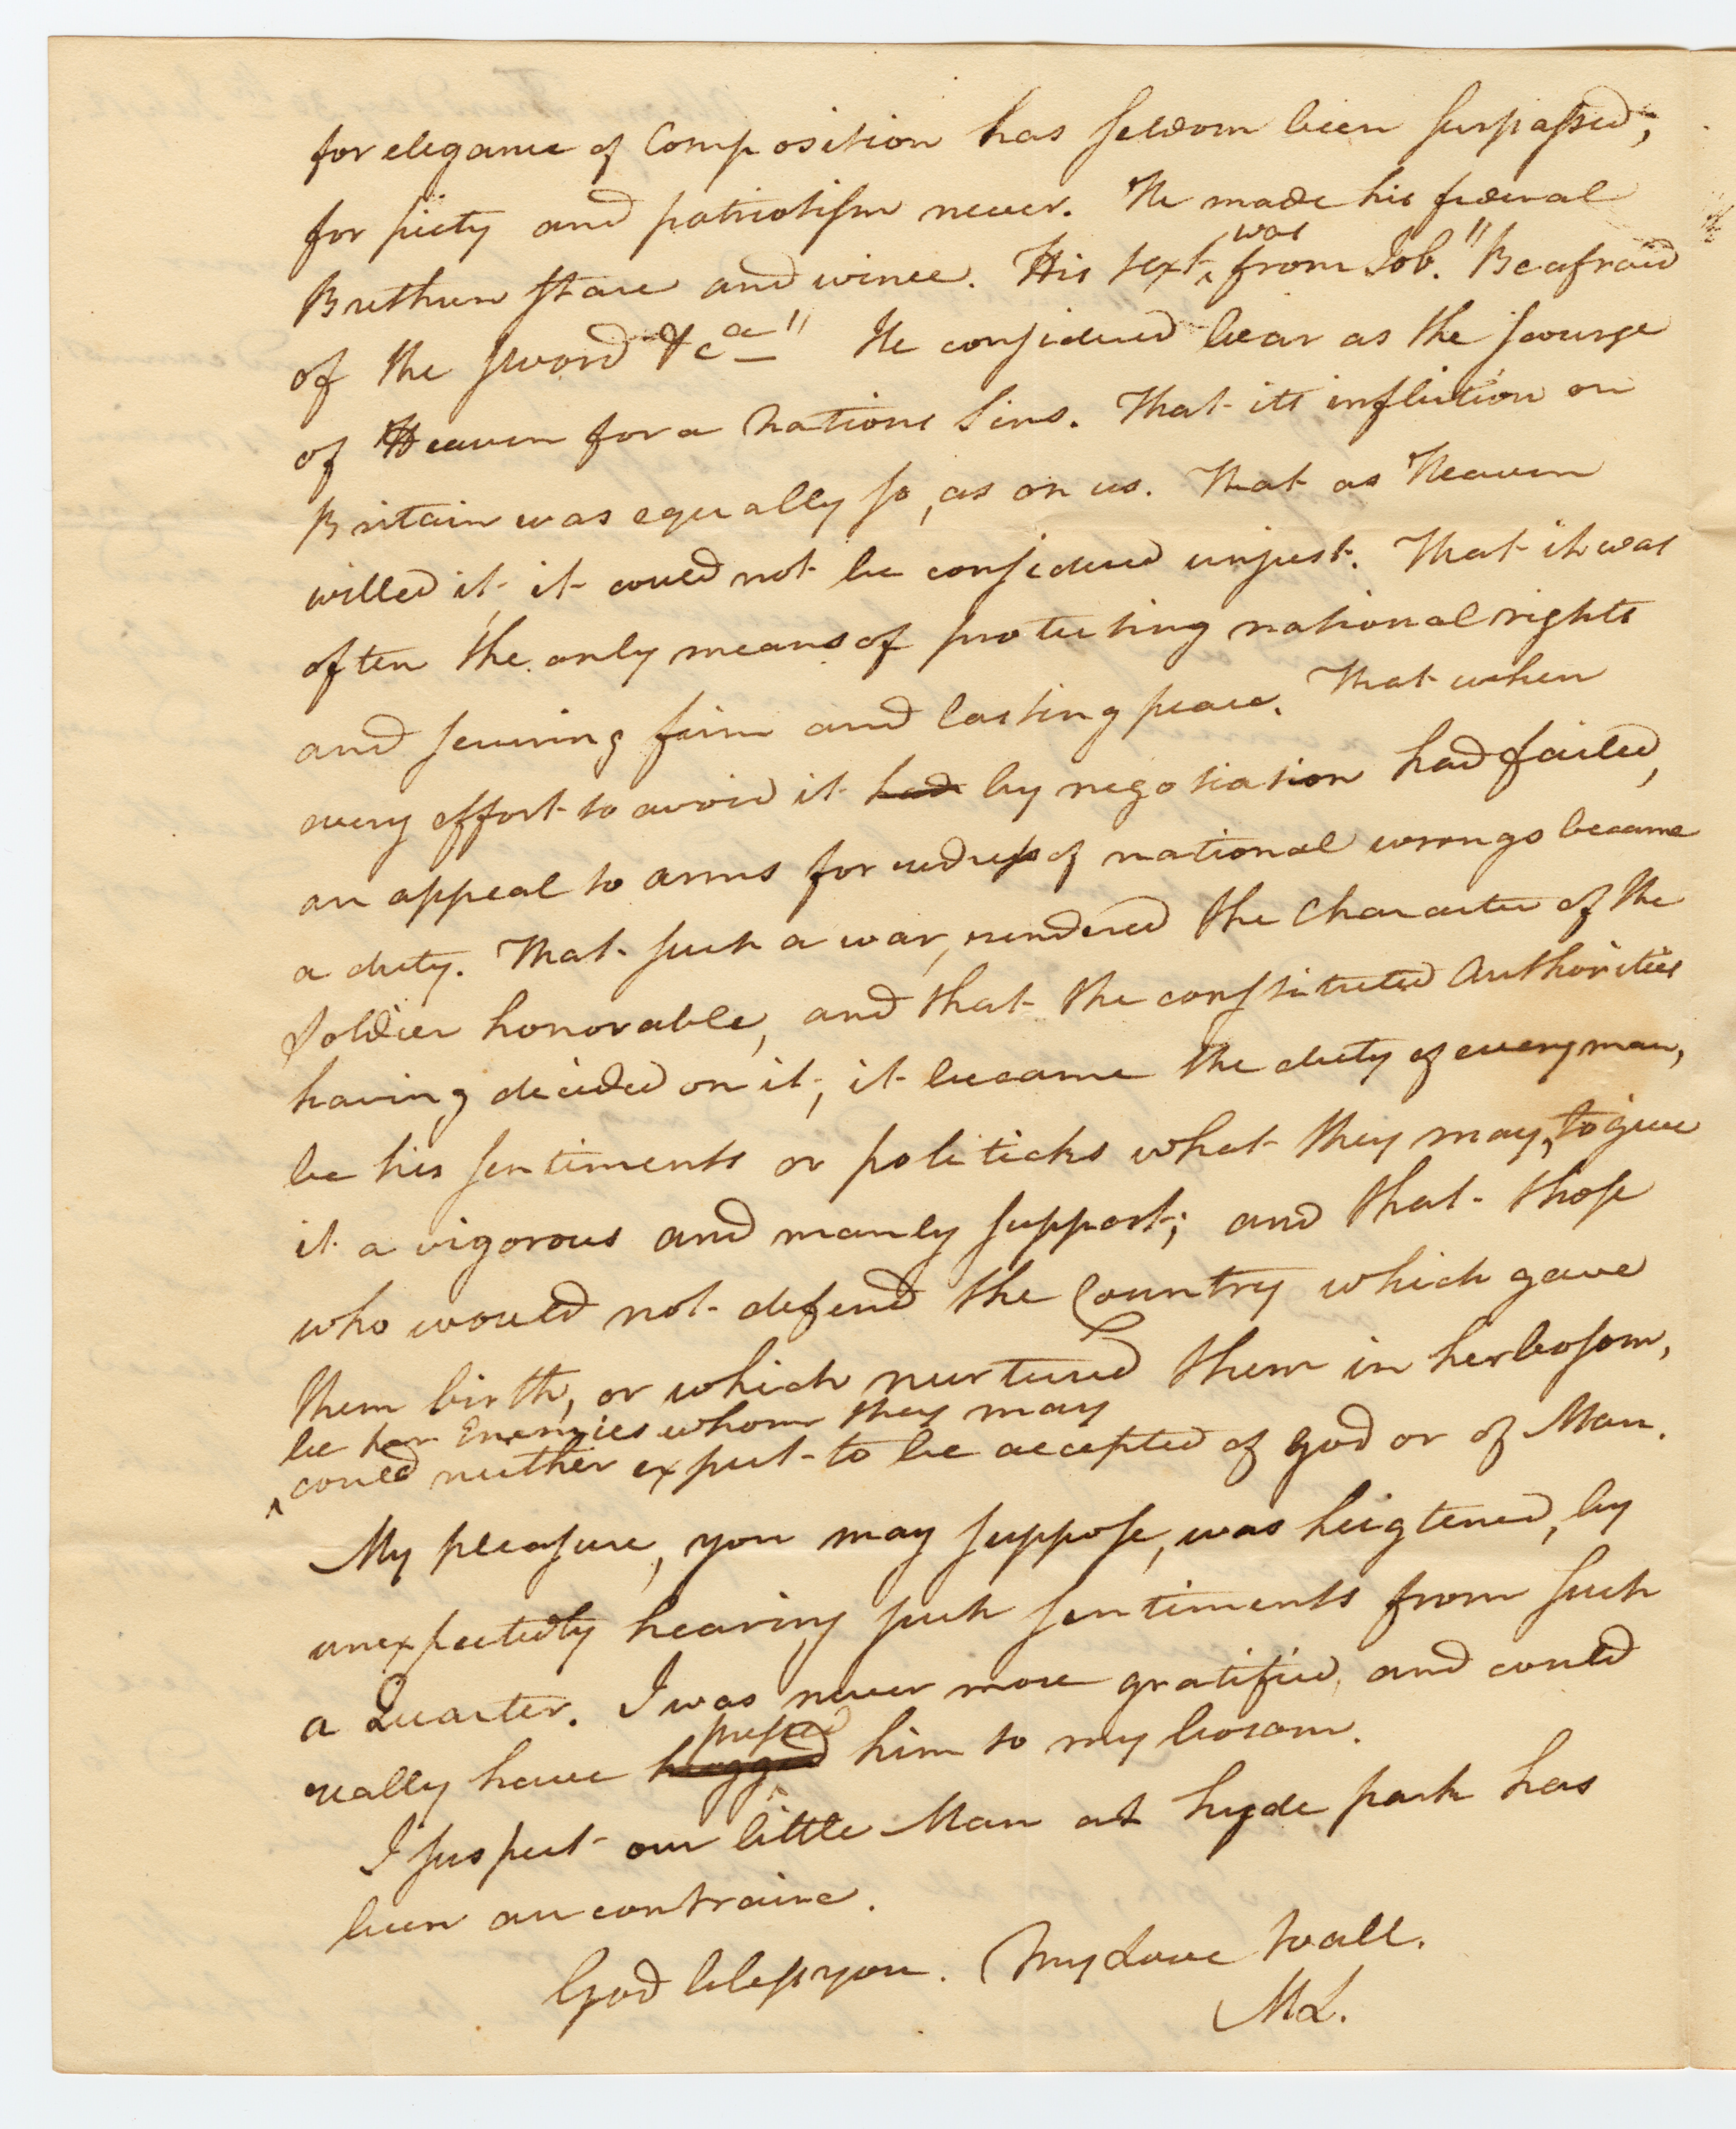 for elegance of Composition has seldom been surpassed;
for piety and patriotism never. He made his federal
Brethren stare and wince. His text was from Job. "Be afraid
of the sword &ca" He considered war as the scourge
of Heaven for a Nations Sins. That its infliction on
Britain was equally so, as on us. That as Heaven
willed it, it could not be considered unjust. That it was
often the only means of protecting national rights
and securing firm and lasting peace. That when
every effort to avoid it had by negotiation had failed,
an appeal to arms for redress of national wrongs became
a duty. That such a war, rendered the Character of the
Soldier honorable, and that the constituted Authorities
having decided on it, it became the duty of every man,
be his sentiments or politicks what they may, to give
it a vigorous and manly support; and that those
who would not defend the Country which gave
them birth, or which nurtured them in her bosom,
be her Enemies whom they may
could neither expect to be accepted of God or of Man.
My pleasure, you may suppose, was heigtened, by
unexpectedly hearing such sentiments from such
a Quarter. I was never more gratified, and could
pressed
really have hugged him to my bosom.
I suspect our little Man at hyde park has
been au contraire.
God bless you. My Love to all.
ML.